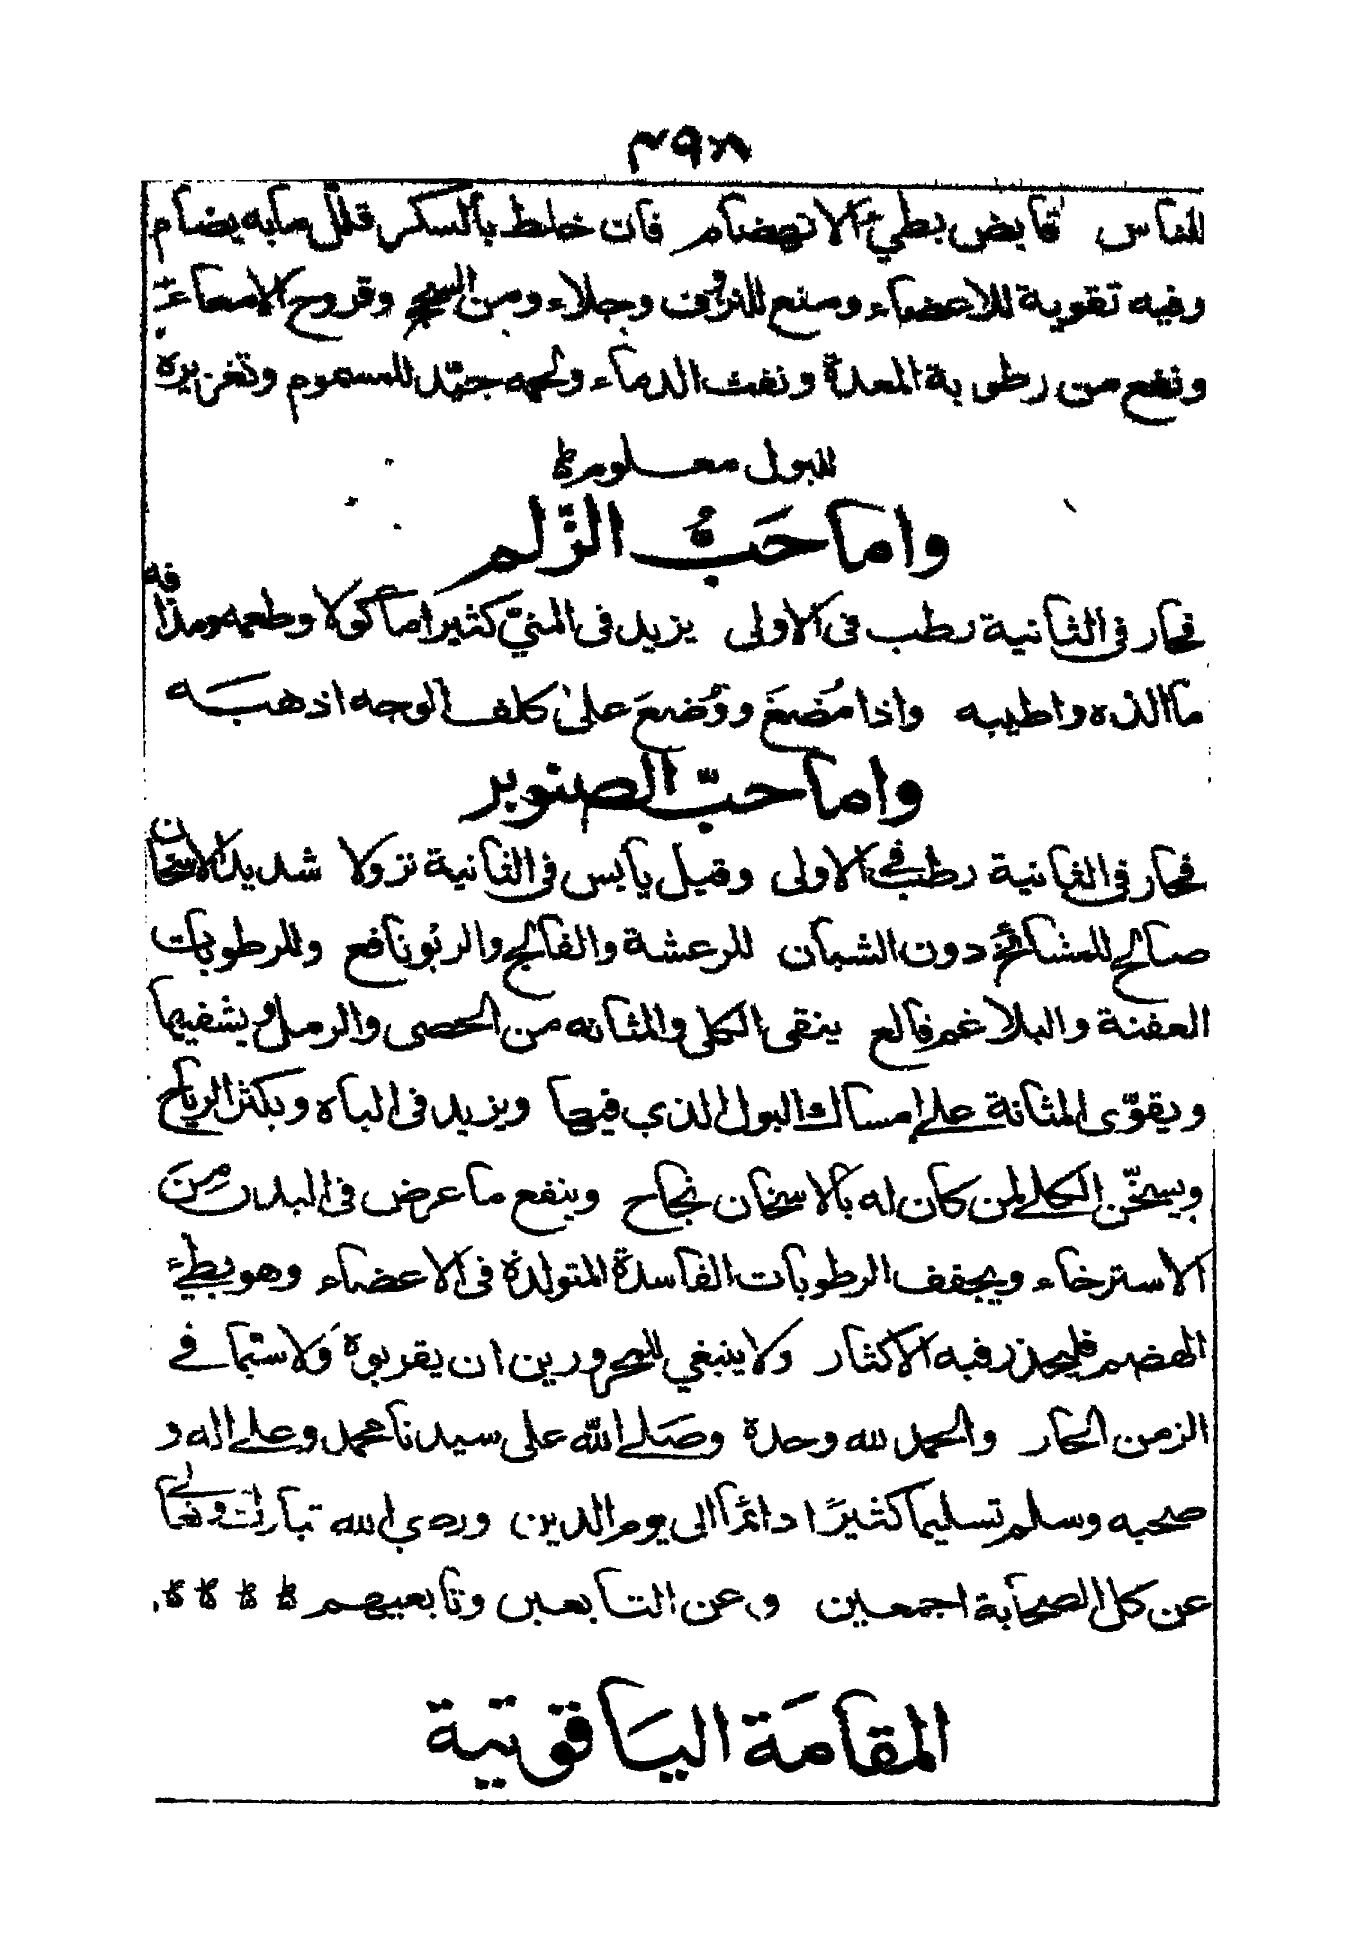 ٣٩٨
للناس قابض بطيّ الانهضام فان خلط بالسكر قلل مابه يضام
وفيه تقوية للاعضاء ومنع للنزف وجلاء ومن السحج وقروح الامعاء
ونفع من رطوبة المعدة ونفث الدماء ولحمه جيّد للمسموم وتغزيره
للبول معلومة
واما حَبُّ الزّلم
فحار فى الثانية رطب فى الاولى يزيد فى المنيّ كثيرا ماكولا وطعمه ومذاقه
ما الذه واطيبه واذا مُضغَ ووُضعَ على كلف الوجه اذهبه
واما حبّ الصنوبر
فحار فى الثانية رطب فى الاولى وقيل يابس فى الثانية نزولا شديد الاسخان
صالح للمشائخ دون الشبان للرعشة والفالج والربو نافع وللرطوبات
العفنة والبلاغم قالع ينقى الكلى والمثانه من الحصى والرمل ويشفيهما
ويقوّى المثانة على امساك البول الذي فيها ويزيد فى الباه ويكثر الرياح
ويسخّن الكلى لمن كان له بالاسخان نجاح وينفع ما عرض فى البدن مِن
الاسترخاء ويجفف الرطوبات الفاسدة المتولدة فى الاعضاء وهو بطيء
الهضم فليحذر فيه الاكثار ولا ينبغي للمحرورين ان يقربوة وَلا سيّما فے
الزمن الحار والحمد لله وحدة وصَلى الله على سيدنا محمد وعلى اله و
صحبه وسلم تسليما كثيرًا دائمًا الى يوم الدين ورضي الله تبارك وتعالى
عن كل الصحابة اجمعين وعن التابعين وتابعيهم
المقامَة اليَاقوتية